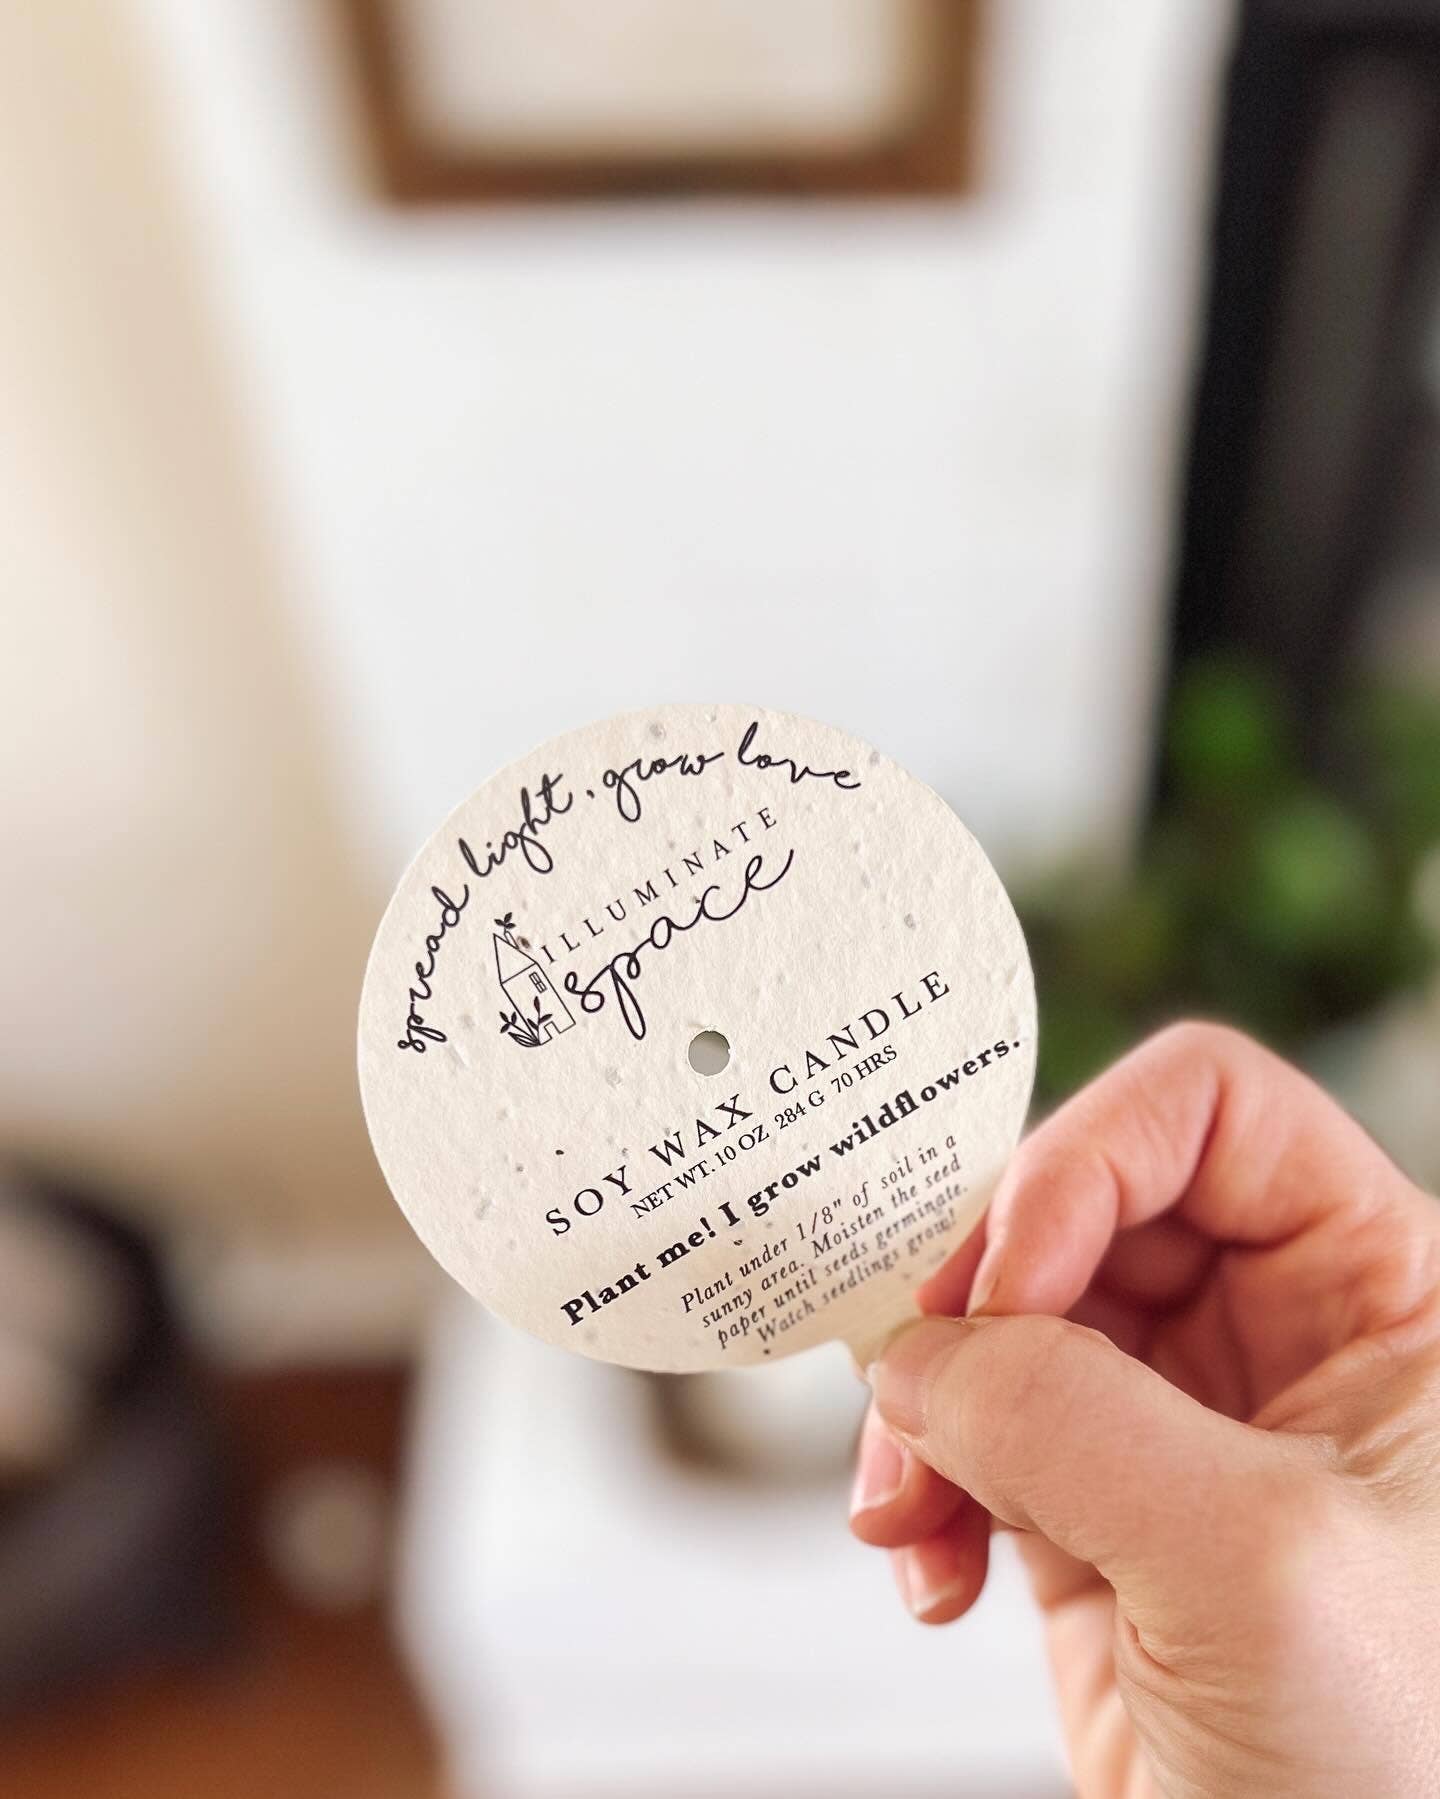 spread light. grow love
ILLUMINATE
space
SOY WAX CANDLE
NET WT. 10 OZ 284 G 70 HRS
Plant me! I grow wildflowers.
Plant under 1/8" of soil in a
sunny area. Moisten the seed
paper until seeds germinate.
Watch seedlings grow!